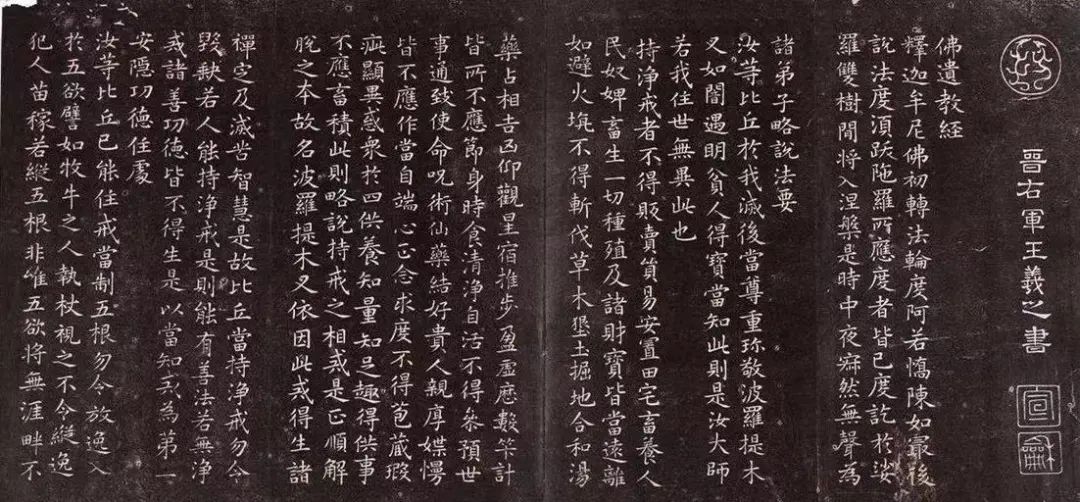 晉右軍王羲之書
宣和
佛遺教經
釋迦牟尼佛初轉法輪度阿若憍陳如最後
說法度須跋陁羅所應度者皆已度訖於娑
羅雙樹間將入涅槃是時中夜寂然無聲為
諸弟子略說法要
汝等比丘於我滅後當尊重珎敬波羅提木
叉如闇遇明貧人得寶當知此則是汝大師
若我住世無異此也
持淨戒者不得販賣貿易安置田宅畜養人
民奴婢畜生一切種殖及諸財寶皆當遠離
如避火坑不得斬伐草木墾土掘地合和湯
藥占相吉凶仰觀星宿推步盈虛應數筭計
皆所不應節身時食清淨自活不得叅預世
事通致使命呪術仙藥結好貴人親厚媟慢
皆不應作當自端心正念求度不得苞蔵瑕
疵顯異惑衆於四供養知量知足趣得供事
不應畜積此則略說持戒之相戒是正順解
脫之本故名波羅提木叉依因此戒得生諸
禪定及滅苦智慧是故比丘當持淨戒勿令
毀缺若人能持淨戒是則能有善法若無淨
戒諸善功德皆不得生是以當知戒為第一
安隱功德住處
汝等比丘已能住戒當制五根勿令放逸入
於五欲譬如牧牛之人執杖視之不令縱逸
犯人苗稼若縱五根非唯五欲將無涯畔不